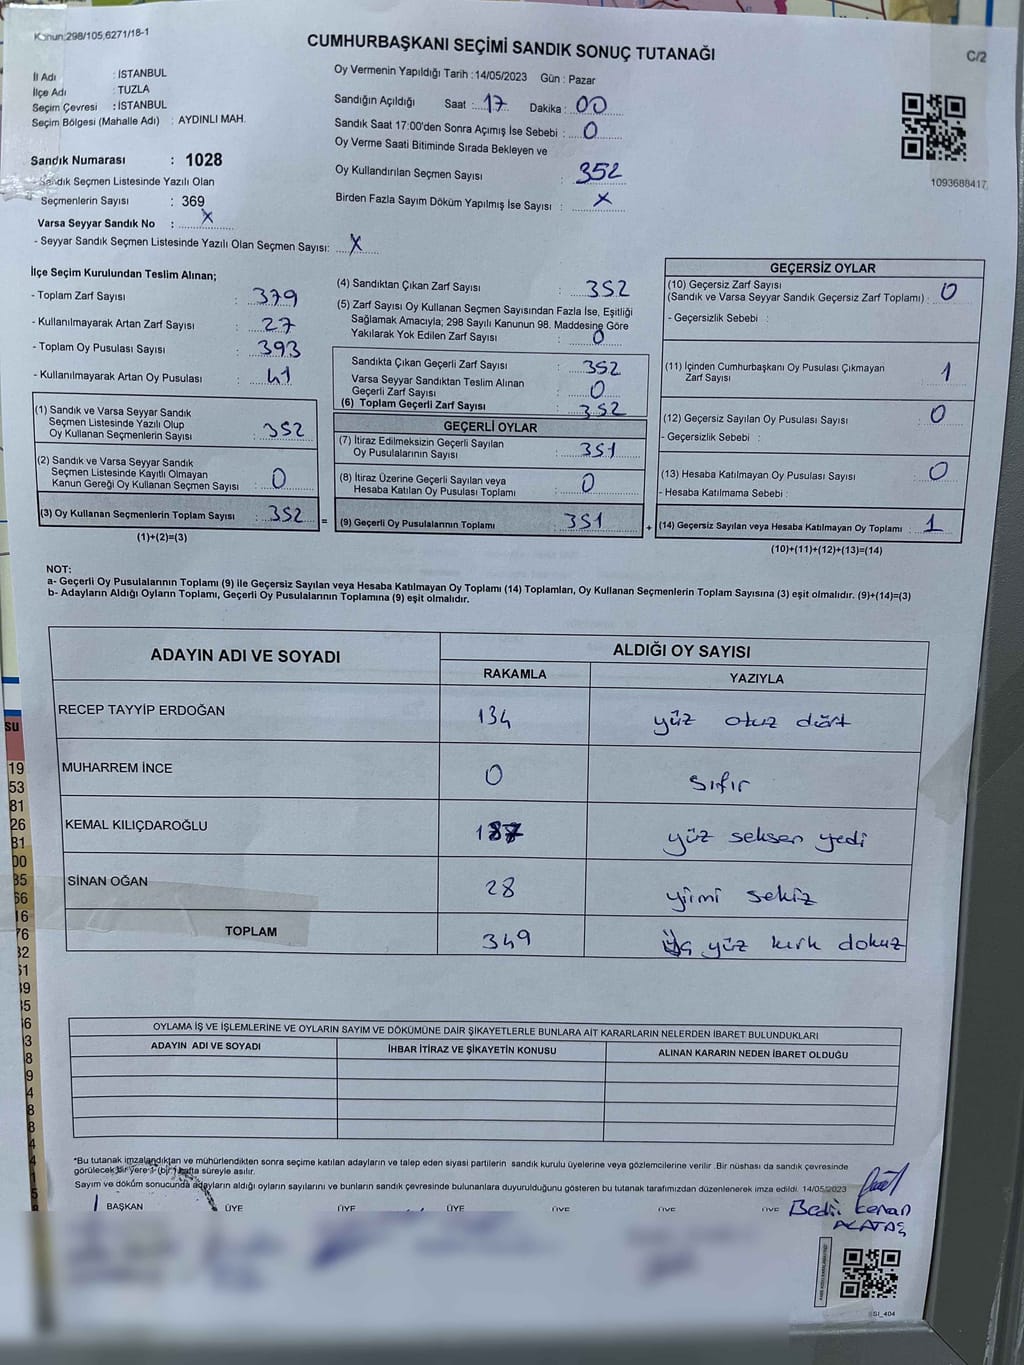 Kanun:298/105,6271/18-1
CUMHURBAŞKANI SEÇİMİ SANDIK SONUÇ TUTANAĞI
C/2
İl Adı : İSTANBUL
İlçe Adı : TUZLA
Seçim Çevresi : İSTANBUL
Seçim Bölgesi (Mahalle Adı) : AYDINLI MAH.
Sandık Numarası : 1028
Sandık Seçmen Listesinde Yazılı Olan
Seçmenlerin Sayısı : 369
Varsa Seyyar Sandık No : X
- Seyyar Sandık Seçmen Listesinde Yazılı Olan Seçmen Sayısı: X
Oy Vermenin Yapıldığı Tarih : 14/05/2023 Gün : Pazar
Sandığın Açıldığı Saat : 17 Dakika : 00
Sandık Saat 17:00'den Sonra Açımış İse Sebebi : 0
Oy Verme Saati Bitiminde Sırada Bekleyen ve
Oy Kullandırılan Seçmen Sayısı : 352
Birden Fazla Sayım Döküm Yapılmış İse Sayısı : X
1093688417
İlçe Seçim Kurulundan Teslim Alınan;
- Toplam Zarf Sayısı : 379
- Kullanılmayarak Artan Zarf Sayısı : 27
- Toplam Oy Pusulası Sayısı : 393
- Kullanılmayarak Artan Oy Pusulası : 41
(1) Sandık ve Varsa Seyyar Sandık
Seçmen Listesinde Yazılı Olup
Oy Kullanan Seçmenlerin Sayısı : 352
(2) Sandık ve Varsa Seyyar Sandık
Seçmen Listesinde Kayıtlı Olmayan
Kanun Gereği Oy Kullanan Seçmen Sayısı : 0
(3) Oy Kullanan Seçmenlerin Toplam Sayısı : 352 =
(1)+(2)=(3)
(4) Sandıktan Çıkan Zarf Sayısı : 352
(5) Zarf Sayısı Oy Kullanan Seçmen Sayısından Fazla İse, Eşitliği
Sağlamak Amacıyla; 298 Sayılı Kanunun 98. Maddesine Göre
Yakılarak Yok Edilen Zarf Sayısı : 0
Sandıkta Çıkan Geçerli Zarf Sayısı : 352
Varsa Seyyar Sandıktan Teslim Alınan
Geçerli Zarf Sayısı : 0
(6) Toplam Geçerli Zarf Sayısı : 352
GEÇERLİ OYLAR
(7) İtiraz Edilmeksizin Geçerli Sayılan
Oy Pusulalarının Sayısı : 351
(8) İtiraz Üzerine Geçerli Sayılan veya
Hesaba Katılan Oy Pusulası Toplamı : 0
(9) Geçerli Oy Pusulalarının Toplamı : 351 +
GEÇERSİZ OYLAR
(10) Geçersiz Zarf Sayısı
(Sandık ve Varsa Seyyar Sandık Geçersiz Zarf Toplamı) : 0
- Geçersizlik Sebebi :
(11) İçinden Cumhurbaşkanı Oy Pusulası Çıkmayan
Zarf Sayısı : 1
(12) Geçersiz Sayılan Oy Pusulası Sayısı : 0
- Geçersizlik Sebebi :
(13) Hesaba Katılmayan Oy Pusulası Sayısı : 0
- Hesaba Katılmama Sebebi :
(14) Geçersiz Sayılan veya Hesaba Katılmayan Oy Toplamı : 1
(10)+(11)+(12)+(13)=(14)
NOT:
a- Geçerli Oy Pusulalarının Toplamı (9) ile Geçersiz Sayılan veya Hesaba Katılmayan Oy Toplamı (14) Toplamları, Oy Kullanan Seçmenlerin Toplam Sayısına (3) eşit olmalıdır. (9)+(14)=(3)
b- Adayların Aldığı Oyların Toplamı, Geçerli Oy Pusulalarının Toplamına (9) eşit olmalıdır.
ADAYIN ADI VE SOYADI
ALDIĞI OY SAYISI
RAKAMLA YAZIYLA
RECEP TAYYİP ERDOĞAN 134 yüz otuz dört
MUHARREM İNCE 0 sıfır
KEMAL KILIÇDAROĞLU 187 yüz seksen yedi
SİNAN OĞAN 28 yirmi sekiz
TOPLAM 349 üç yüz kırk dokuz
su
19
53
81
26
81
00
35
66
16
76
32
51
39
35
OYLAMA İŞ VE İŞLEMLERİNE VE OYLARIN SAYIM VE DÖKÜMÜNE DAİR ŞİKAYETLERLE BUNLARA AİT KARARLARIN NELERDEN İBARET BULUNDUKLARI
ADAYIN ADI VE SOYADI
İHBAR İTİRAZ VE ŞİKAYETİN KONUSU
ALINAN KARARIN NEDEN İBARET OLDUĞU
*Bu tutanak imzalandıktan ve mühürlendikten sonra seçime katılan adayların ve talep eden siyasi partilerin sandık kurulu üyelerine veya gözlemcilerine verilir .Bir nüshası da sandık çevresinde
görülecek bir yere 1 (bir) hafta süreyle asılır.
Sayım ve döküm sonucunda adayların aldığı oyların sayılarını ve bunların sandık çevresinde bulunanlara duyurulduğunu gösteren bu tutanak tarafımızdan düzenlenerek imza edildi. 14/05/2023
BAŞKAN ÜYE ÜYE ÜYE ÜYE ÜYE ÜYE
Bedii Kenan
ALATAŞ